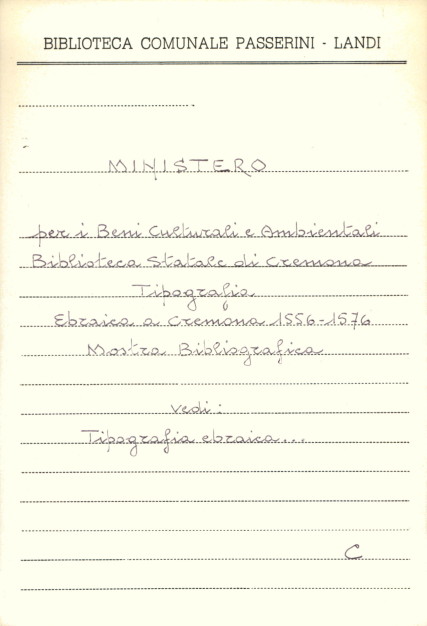 BIBLIOTECA COMUNALE PASSERINI - LANDI
MINISTERO
per i Beni Culturali e Ambientali
Biblioteca Statale di Cremona
Tipografia
Ebraica a Cremona 1556-1576
Mostra Bibliografica
vedi:
Tipografia ebraica...
C